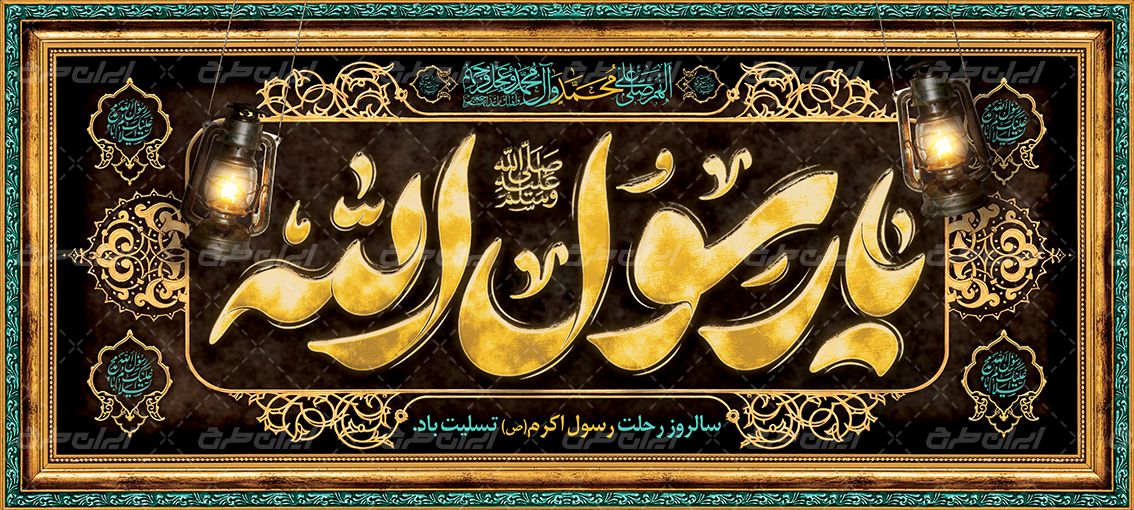 اللهم صل علی محمد وآل محمد وعجل فرجهم
یا رسول الله
صلی الله علیه وسلم
سالروز رحلت رسول اکرم(ص) تسلیت باد.
ایران طرح